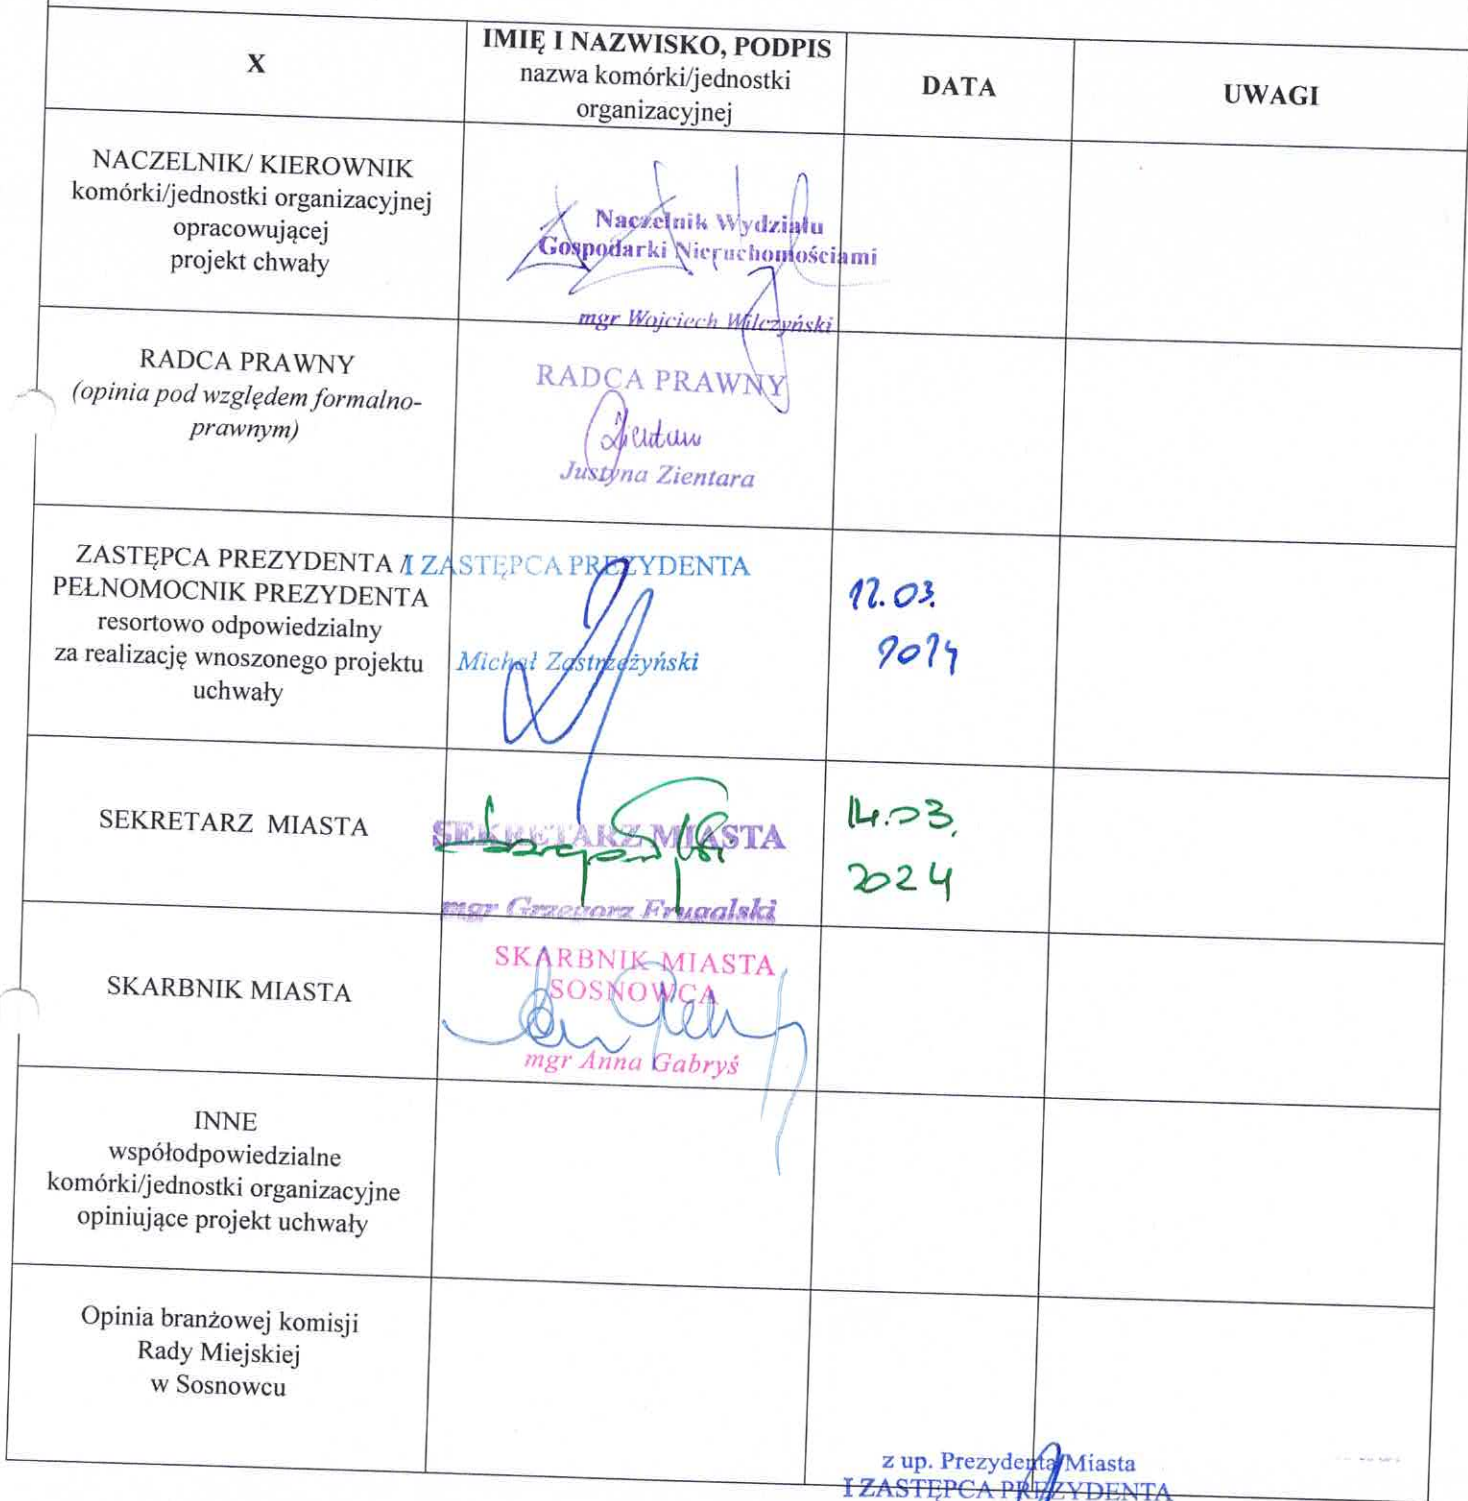 X
IMIĘ I NAZWISKO, PODPIS
nazwa komórki/jednostki
organizacyjnej
DATA
UWAGI
NACZELNIK/ KIEROWNIK
komórki/jednostki organizacyjnej
opracowującej
projekt chwały
Naczelnik Wydziału
Gospodarki Nieruchomościami
mgr Wojciech Wilczyński
RADCA PRAWNY
(opinia pod względem formalno-
prawnym)
RADCA PRAWNY
Justyna Zientara
ZASTĘPCA PREZYDENTA /
PEŁNOMOCNIK PREZYDENTA
resortowo odpowiedzialny
za realizację wnoszonego projektu
uchwały
I ZASTĘPCA PREZYDENTA
Michał Zastrzeżyński
12.03.
2024
SEKRETARZ MIASTA
SEKRETARZ MIASTA
mgr Grzegorz Frugalski
14.03.
2024
SKARBNIK MIASTA
SKARBNIK MIASTA
SOSNOWCA
mgr Anna Gabryś
INNE
współodpowiedzialne
komórki/jednostki organizacyjne
opiniujące projekt uchwały
Opinia branżowej komisji
Rady Miejskiej
w Sosnowcu
z up. Prezydenta Miasta
I ZASTĘPCA PREZYDENTA